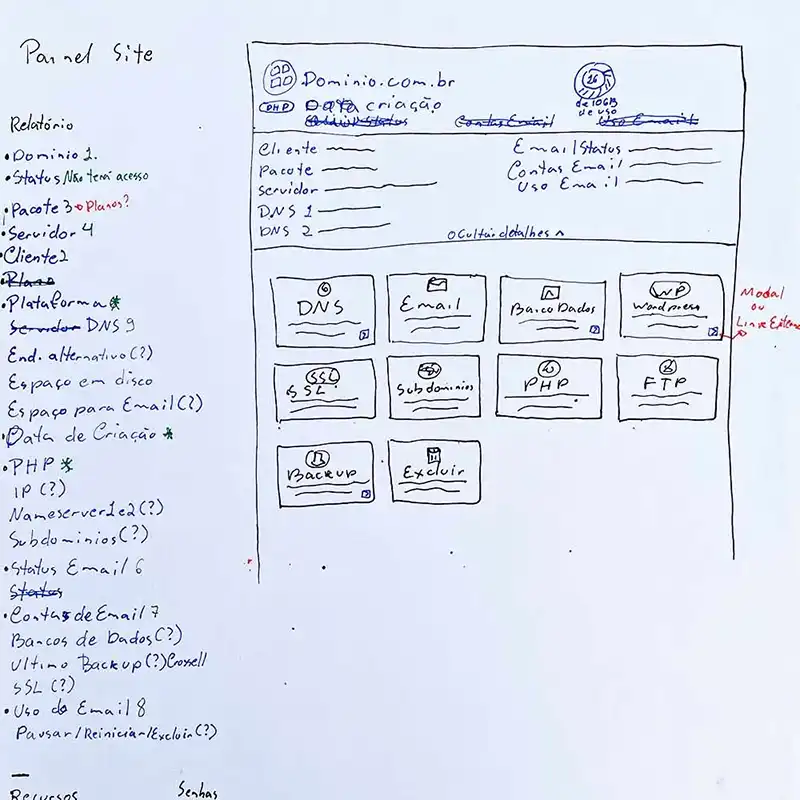 Painel Site
Relatório
• Dominio 1.
• Status Não terá acesso
• Pacote 3 Planos?
• Servidor 4
• Cliente 2
• Plano
• Plataforma *
Servidor DNS 9
End. alternativo (?)
Espaço em disco
Espaço para Email (?)
• Data de Criação *
• PHP *
IP (?)
Nameserver 1 e 2 (?)
Subdominios (?)
• Status Email 6
Status
• Contas de Email 7
Bancos de Dados (?)
Ultimo Backup (?) Crossell
SSL (?)
• Uso do Email 8
Pausar/Reiniciar/Excluir (?)
Recursos
Senhas
Dominio.com.br
PHP Data criação
26
de 10GB
de uso
Contas Email
Uso Email
Cliente
Pacote
Servidor
DNS 1
DNS 2
Email Status
Contas Email
Uso Email
Ocultar detalhes ^
DNS
Email
Banco Dados
WP
Wordpress
SSL
SSL
Subdominios
PHP
FTP
Backup
Excluir
Modal
ou
Link Externo